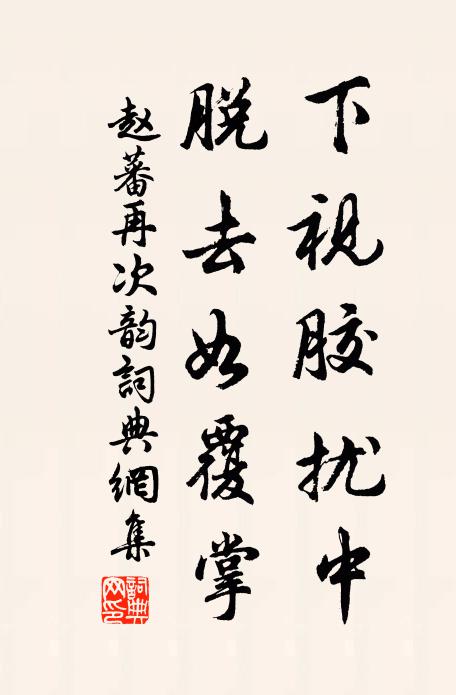 下視胶扰中
脱去如覆掌
赵蕃再次韵詞典網集
詞典网印